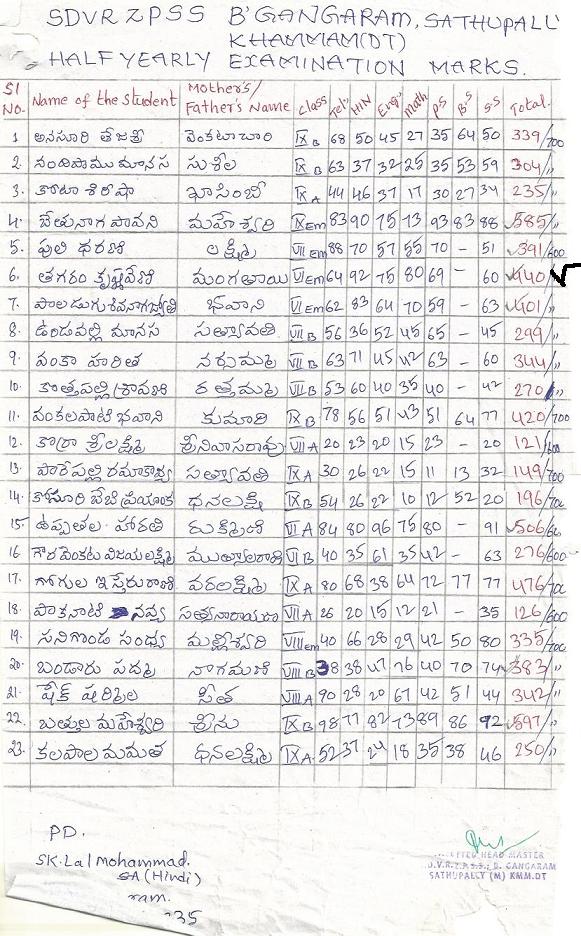 SDVR ZPSS B'GANGARAM, SATHUPALLI
KHAMMAM(DT)
HALF YEARLY EXAMINATION MARKS.
Sl No. Name of the student Mother's/ Father's Name Class Tel HIN Eng Math PS BS SS Total.
1 అనసూరి తేజశ్రీ వెంకటాచారి IX B 68 50 45 27 35 64 50 339/700
2. మానస సుశీల IX B 63 37 32 25 35 53 59 304/"
3. కోటా శిరీషా ఖాసింబీ IX A 44 46 37 17 30 27 34 235/"
4. చేతునాగ పావని మహేశ్వరి IX Em 83 90 75 73 93 83 88 585/"
5. పులి ధరణి లక్ష్మి VII Em 88 70 57 55 70 - 51 391/600
6. తగరం కృష్ణవేణి మంగతాయి VI Em 64 92 75 80 69 - 60 440
7. పాలడుగు శివనాగజ్యోతి భవాని VI Em 62 83 64 70 59 - 63 401/"
8. ఉండపల్లి మానస సత్యావతి VII B 56 36 52 45 65 - 45 299
9. వంకా హరిత నర్సమ్మ VII B 63 71 45 42 63 - 60 344/"
10. కొత్తపల్లి శ్రావణి రత్తమ్మ VII B 53 60 40 35 40 - 42 270/"
11. వంకలపాటి భవాని కుమారి IX B 78 56 51 43 51 64 77 420/700
12. కొర్రా శ్రీలక్ష్మి శ్రీనివాసరావు VII A 20 23 20 15 23 - 20 121/600
13. పారేపల్లి రమాకావ్య సత్యావతి IX A 30 26 22 15 11 13 32 149/700
14. కోసూరి బేబి ప్రియాంక ధనలక్ష్మి IX B 54 26 22 10 12 52 20 196/700
15. ఉప్పుతల హారతి రుక్మిణి VI A 84 80 96 75 80 - 91 506/60
16 గౌర వెంకట విజయలక్ష్మి ముత్యాలరావు VI B 40 35 61 35 42 - 63 276/600
17. గోగుల ఇస్తేరురాణి వరలక్ష్మి IX A 80 68 38 64 72 77 77 476/700
18. పాకనాటి నవ్య సత్యనారాయణ VII A 26 20 15 12 21 - 35 126/600
19. సనిగొండ సంధ్య మల్లీశ్వరి VIII Em 40 66 28 29 42 50 80 335/700
20. బండారు పద్మ నాగమణి VIII B 38 38 47 76 40 70 74 383/"
21. షేక్ షర్మిల సీత VIII A 90 28 20 67 42 51 44 342/"
22. బత్తుల మహేశ్వరి శ్రీను IX B 98 77 82 73 89 86 92 597/"
23. కలపాల మమత ధనలక్ష్మి IX A 52 37 24 18 35 38 46 250/"
PD.
SK. Lal Mohammad.
SA (Hindi)
ram.
35
HEAD MASTER
D.V.R.Z.P.S.S.; B. GANGARAM
SATHUPALLY (M) KMM.DT